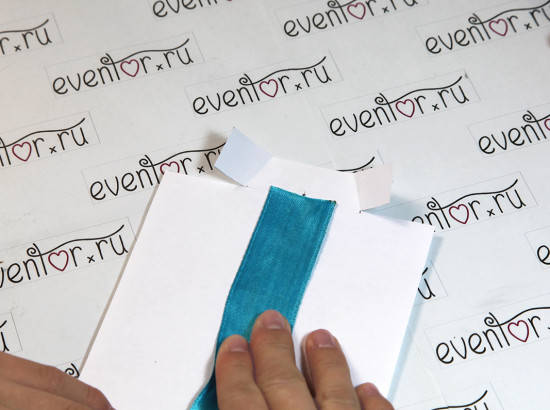 eventor x.ru
eventor x.ru
eventor x.ru
eventor x.ru
eventor x.ru
eventor x.ru
eventor x.ru
eventor x.ru
eventor x.ru
eventor x.ru
eventor x.ru
eventor x.ru
eventor x.ru